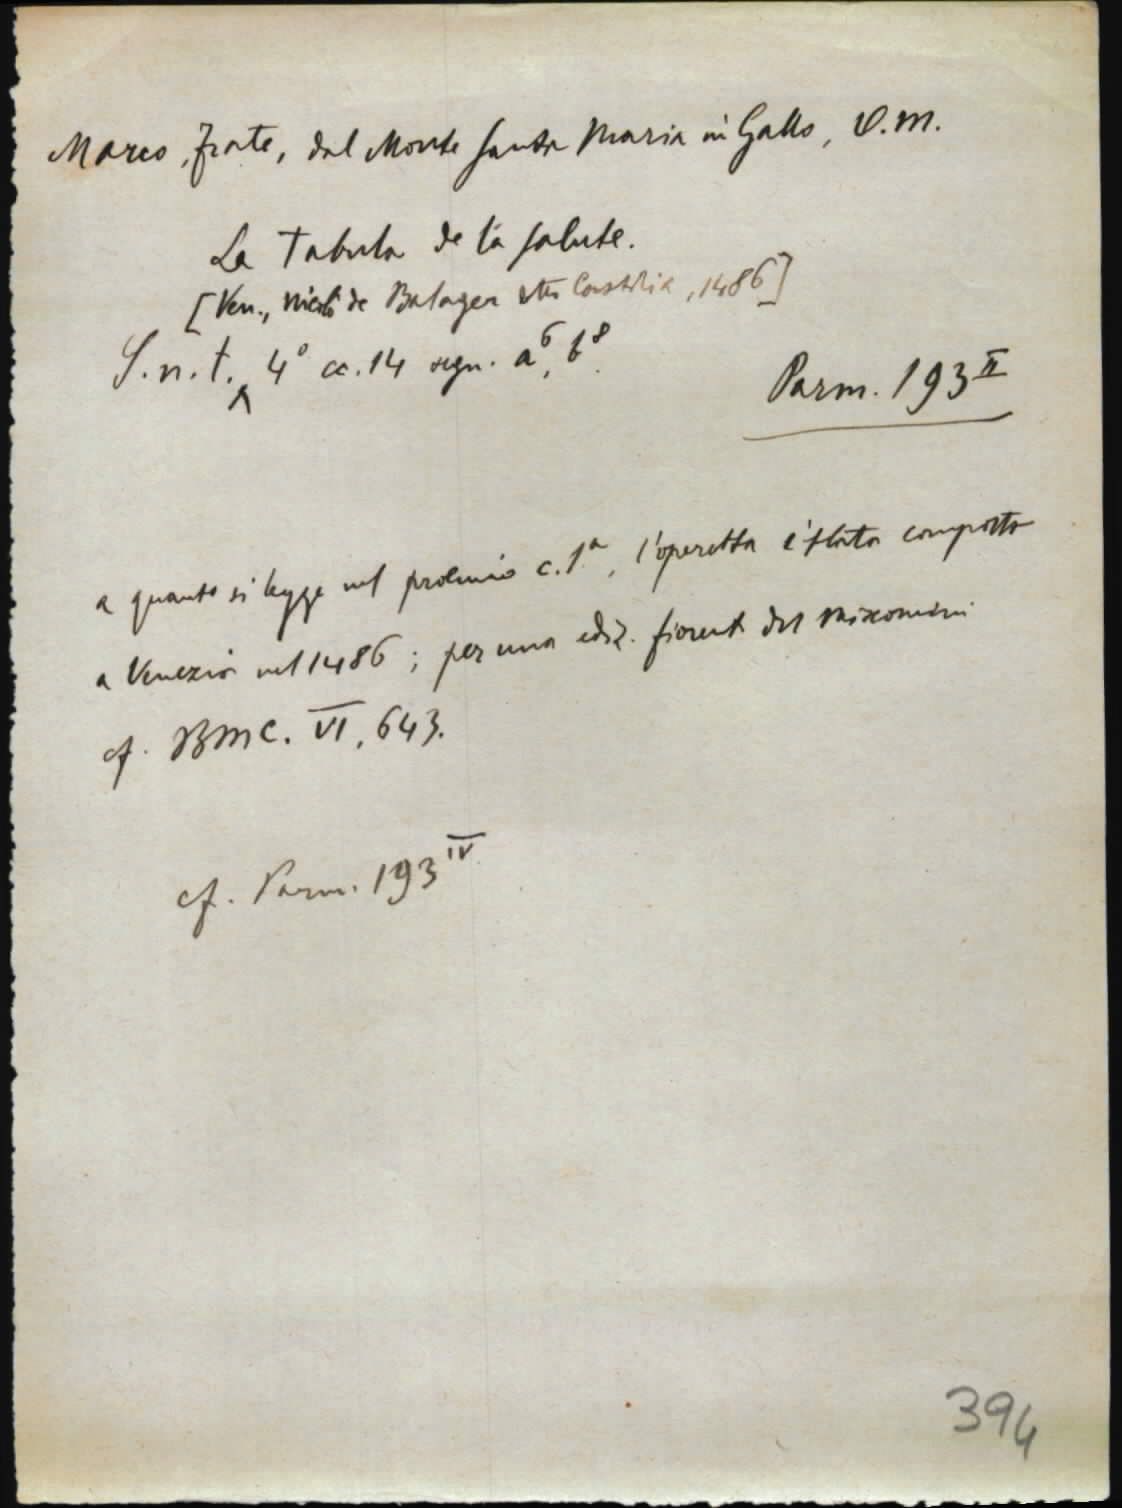 Marco, frate, dal Monte Santa Maria in Gallo, O.M.
La Tabula de la salute.
[Ven., Nicolò de Balager detto Castilia, 1486]
S.n.t. ʌ 4° cc. 14 segn. a⁶, b⁸.
Parm. 193 II
a quanto si legge nel proemio c. 1ª, l'operetta è stata composta
a Venezia nel 1486; per una ediz. fiorent. del Miscomini
cf. BMC. VI, 643.
cf. Parm. 193 IV
394